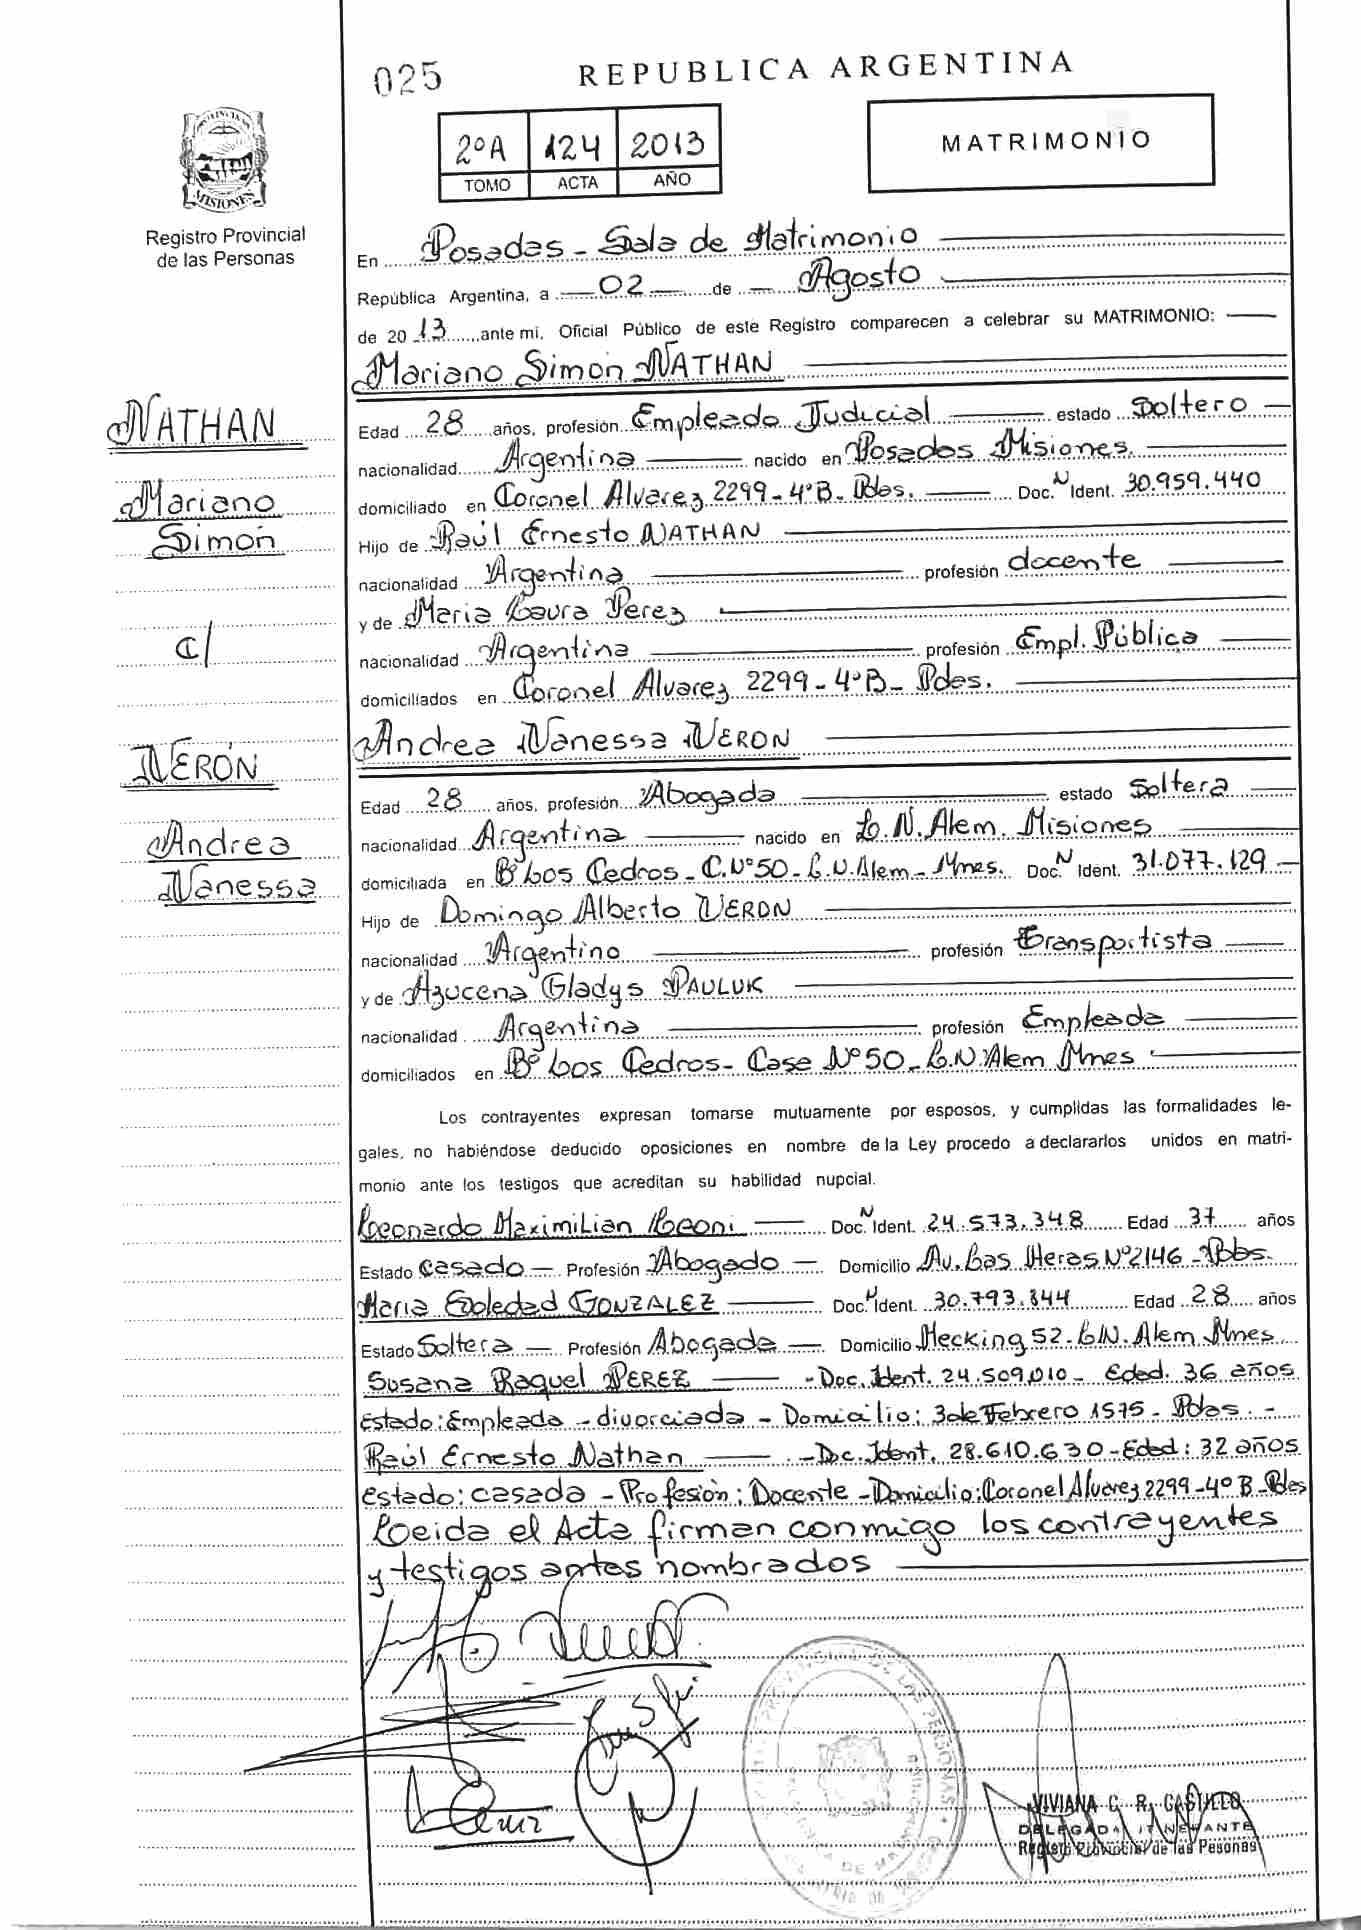 025
REPUBLICA ARGENTINA
2ºA 124 2013
TOMO ACTA AÑO
MATRIMONIO
MISIONES
Registro Provincial
de las Personas
En Posadas - Sala de Matrimonio
República Argentina, a 02 de Agosto
de 2013 ante mi, Oficial Público de este Registro comparecen a celebrar su MATRIMONIO:
Mariano Simón NATHAN
NATHAN
Mariano
Simón
c/
VERÓN
Andrea
Vanessa
Edad 28 años, profesión Empleado Judicial estado Soltero
nacionalidad Argentina nacido en Posadas Misiones.
domiciliado en Coronel Alvarez 2299-4ºB-Pdas. Doc. N Ident. 30.959.440
Hijo de Raúl Ernesto NATHAN
nacionalidad Argentina profesión docente
y de Maria Laura Perez
nacionalidad Argentina profesión Empl. Pública
domiciliados en Coronel Alvarez 2299-4ºB-Pdas.
Andrea Vanessa VERON
Edad 28 años, profesión Abogada estado Soltera
nacionalidad Argentina nacido en L.N.Alem. Misiones
domiciliada en Bº Los Cedros-C.Nº50-L.N.Alem-Mnes. Doc. N Ident. 31.077.129
Hijo de Domingo Alberto VERON
nacionalidad Argentino profesión transportista
y de Azucena Gladys PAULUK
nacionalidad Argentina profesión Empleada
domiciliados en Bº Los Cedros-Casa Nº50-L.N.Alem Mnes
Los contrayentes expresan tomarse mutuamente por esposos, y cumplidas las formalidades le-
gales, no habiéndose deducido oposiciones en nombre de la Ley procedo a declararlos unidos en matri-
monio ante los testigos que acreditan su habilidad nupcial.
Leonardo Maximilian Leoni Doc. N Ident. 24.573.348 Edad 37 años
Estado Casado Profesión Abogado Domicilio Av. Las Heras Nº2146-Pdas.
Maria Soledad GONZALEZ Doc. N Ident. 30.793.344 Edad 28 años
Estado Soltera Profesión Abogada Domicilio Hecking 52-L.N.Alem Mnes
Susana Raquel PEREZ - Doc. Ident. 24.509.010- Edad. 36 años
Estado: Empleada - divorciada - Domicilio: 3 de Febrero 1575-Pdas.-
Raúl Ernesto Nathan - Dc. Ident. 28.610.630-Edad: 32 años
estado: casada - Profesión: Docente - Domicilio: Coronel Alvarez 2299-4º B-Pdas
Leida el Acta firman conmigo los contrayentes
y testigos antes nombrados
VIVIANA C. R. CASTILLO
DELEGADA ITINERANTE
Registro Provincial de las Pesonas